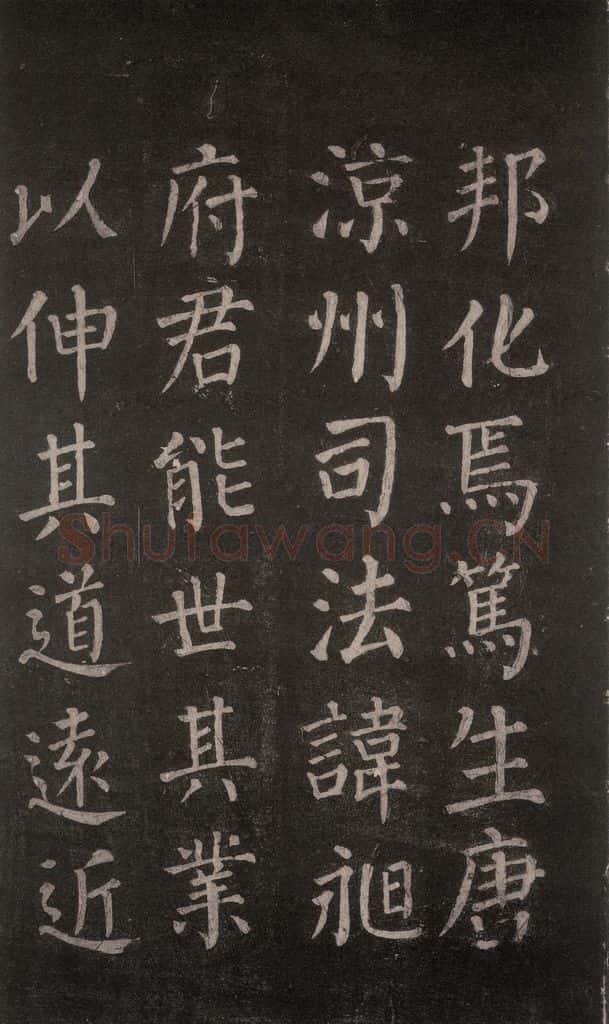 邦化焉篤生唐
涼州司法諱昶
府君能世其業
以伸其道遠近
Shufawang.CN